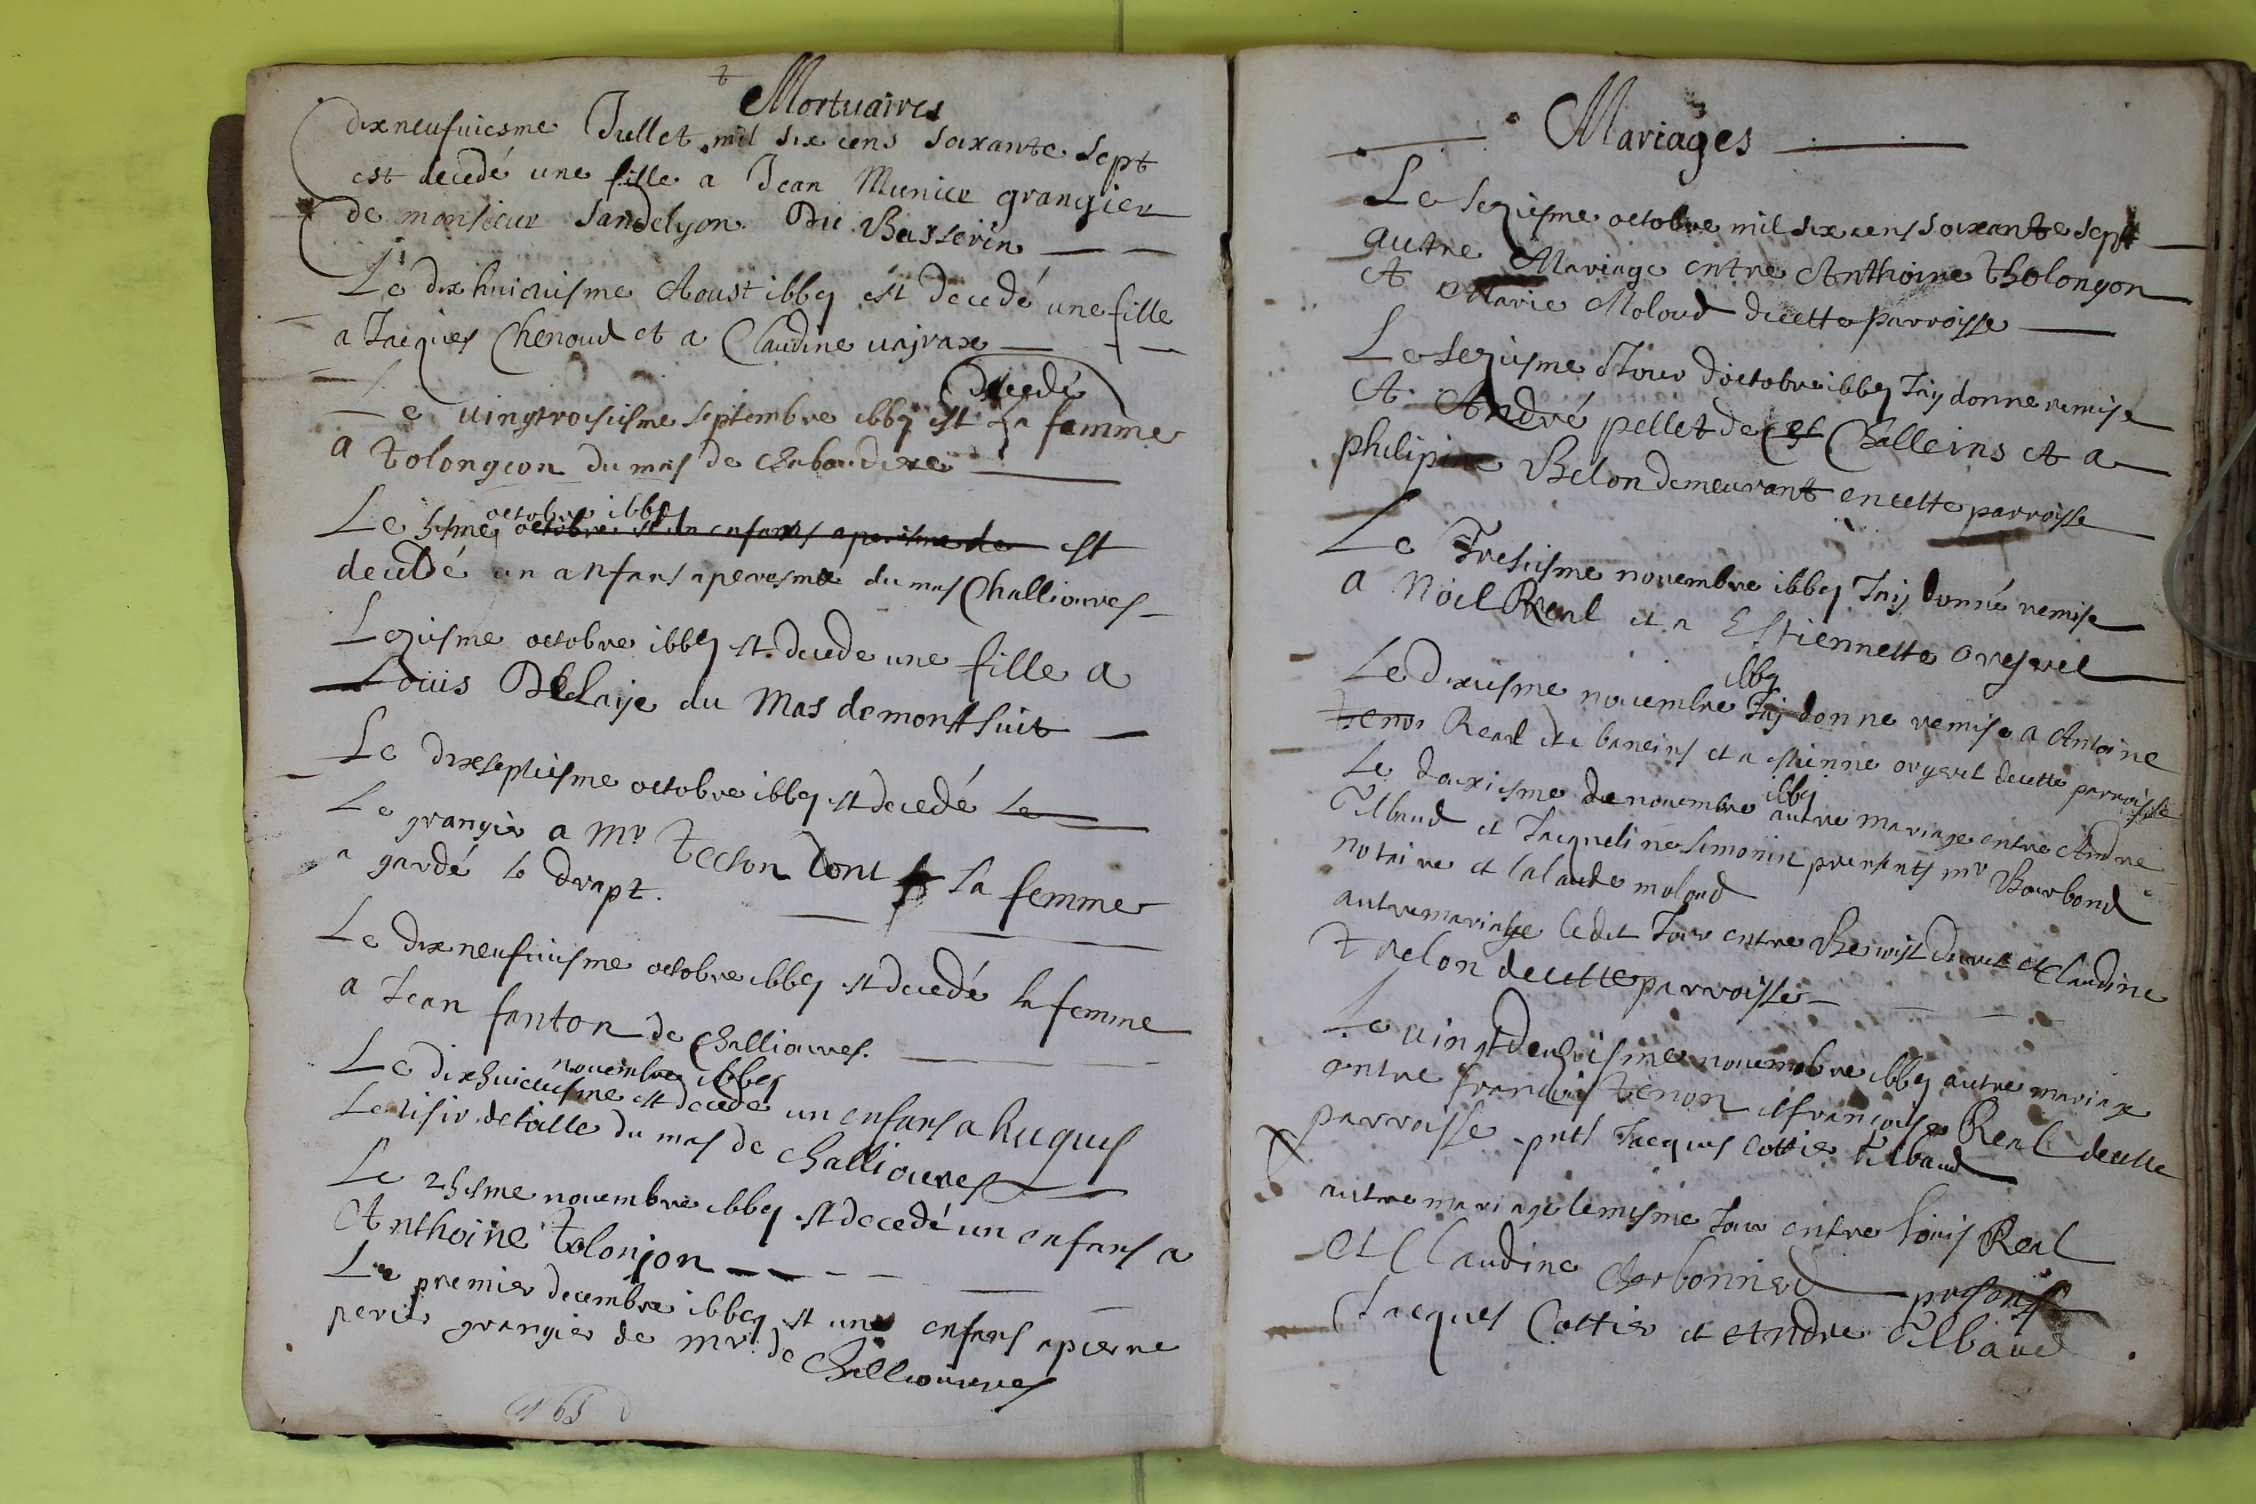 Mortuaires
dixneufuiesme Jullet mil six cens soixante sept
est decedé une fille a Jean Munier grangier
de monsieur Sandelyon Du Busserin
Le dixhuicuiesme Aoust 1667 est decedé une fille
a Jacques Chenoud et a Claudine
decedé
Le uingtroisiesme septembre 1667 est la femme
a tolongeon du mas de
octobre 1667
Le octobre est un enfans a de est
decedé un anfans a du mas Challiouvres
Le octobre 1667 est decede une fille a
Louis DeLaije du Mas de montsuit
Le dixseptiesme octobre 1667 est decedé Le
Le grangier a Mr tecton dont la femme
a gardé le drapt.
Le dixneufuiesme octobre 1667 est decedé la femme
a Jean fanton de Challiouvres.
novembre 1667
Le dixhuicuiesme est decede un enfans a hugues
de taille du mas de Challiouvres
Le novembre 1667 est decedé un enfans a
Anthoine tolonjon
Le premier decembre 1667 est une enfans a pierre
peris grangier de mr. de Challiouvres
Mariages
Le seziesme octobre mil six cens soixante sept
autre Mariage entre Anthoine tholongon
et Marie Moloud de cette parroisse
Le seziesme Jour d'octobre 1667 J'ay donne remise
A André pellet de Challeins et a
philipine Belon demeurant en cette parroisse
Le Tresiesme novembre 1667 J'ay donné remise
a Noel Real et a Estiennette
1667
Le Dixiesme novembre J'ay donne remise a Antoine
Real de baneins et a de cette parroisse
1667
Le douxiesme de novembre autre mariage entre Andre
Tilbaud et Jacqueline Simonin presents mr Bourbond
notaire et Claude moloud
autre mariage ledit Jour entre Benoist et Claudine
trelon de cette parroisse
Le uingtdeuxiesme novembre 1667 autre mariage
entre francois tenon et francoise Real de cette
parroisse pnts Jacques Cottier tilbaud
autre mariage le mesme Jour entre Louis Real
et Claudine Charbonnied presents
Jacques Cottier et Andre Tilbaud